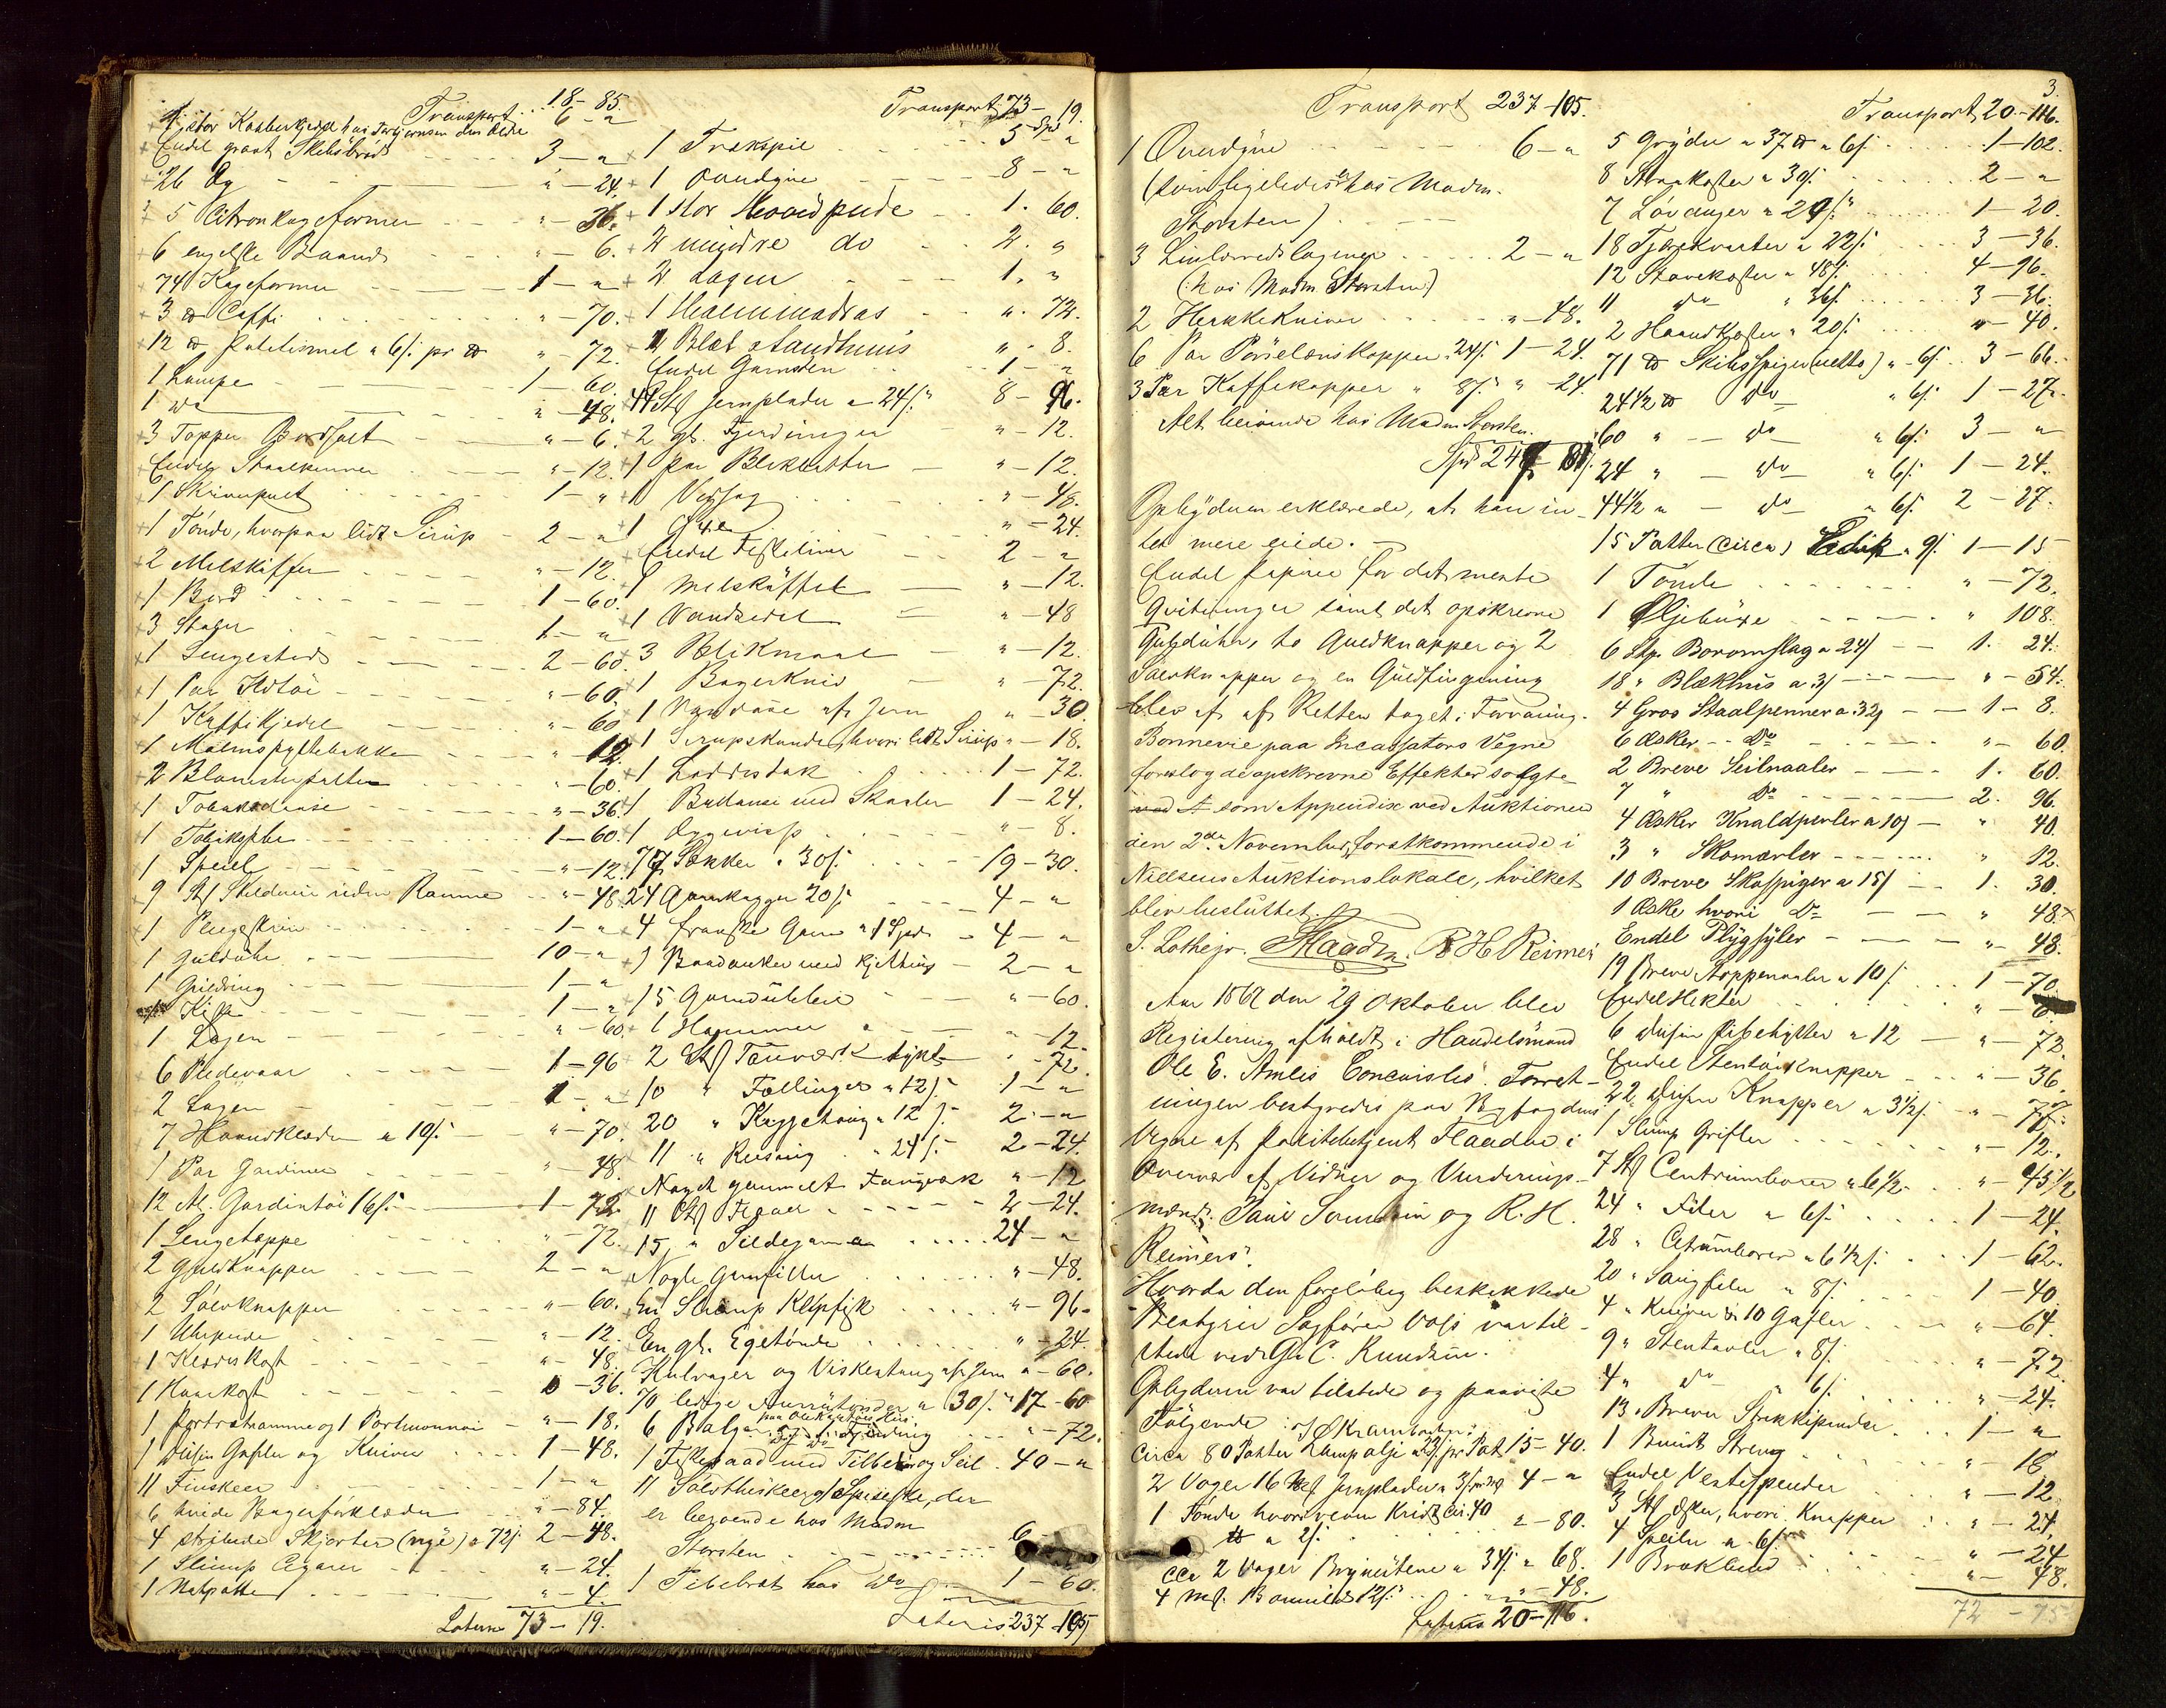 Transport 18 - 85.
1 stor Kobberkjedel hos Torgjernsen den Ældre 6 - "
Endel grant Skibsbrød 3 - "
26 Æg " - 24.
5 Citronkageformer " - 36.
6 engelske Baand " - 6.
74 Kageformer 1 - "
3 ℔ Caffi " - 70.
12 ℔ Potetismel a 6/: pr ℔ " - 72.
1 Lampe 1 - 60.
1 do " - 48.
3 Topper Bordsalt " - 6.
Endel Staalpenner " - 12.
1 Skrivepult 1 - "
1 Tønde, hvorpaa lidt Sirup 2 - "
2 Melskuffer " - 12.
1 Bord 1 - 60.
3 Stager 1 - "
1 Sengested 2 - 60.
1 Par Ildtøi " - 60.
1 Kaffekjedel " - 60
1 Malmspyttebakke " - 12.
2 Blomsterpotter " - 60.
1 Tobaksdaase " - 36.
1 Tobakspibe 1 - 60.
1 Speil " - 12.
9 St/ Skilderier uden Ramme " - 48.
1 Pengeskrin 1 - "
1 Guldühr 10 - "
1 Guldring 1 - "
Kiste 1 - "
1 Lagen " - 60.
6 Pudevaar 1 - 96
2 Lagen 1 - "
7 Haandklæder a 10/: " - 70.
1 Par Gardiner " - 48.
12 Al. Gardintøi 16/: 1 - 72.
1 Sengetæppe " - 72.
2 Guldknapper 2 - "
2 Sølvknapper " - 60.
1 Uhrpude " - 12.
1 Klædeskost " - 48.
1 Haarkost " - 36.
1 Portrætramme og 1 Portmonnai " - 18.
1 Dusin Gafler og Kniver 1 - 48.
11 Finskeer 1 - "
6 hvide Bagerforklæder " - 84.
4 stribede Skjorter (nye) a 72/: 2 - 48.
1 Slump Cigarer " - 24.
1 Natpotte " - 4.
Lateris 73 - 19.
Transport 73 - 19.
1 Trækspil 5 Spd "
1 Overdyne 8 - "
1 stor Hovedpude 1. 60.
2 mindre do 2. "
2 Lagen 1. "
1 Halmmadras ". 72.
2 Blæk standhuus " . 8.
Endel Garnsten 1 - "
44 St/ Jernplader a 24/: 8 - 96.
2 gl. Fjerdinger " - 12.
1 par Blikbøtter " - 12.
1 Vedsag " - 48.
1 Øxe " - 24.
Endel Fiskeliner 2 - "
1 Melskuffel " - 12.
1 Vandsedel " - 48
3 Blikmaal " - 12.
1 Bagerkniv " - 72.
1 Vandøse af Jern " - 30
1 Sirupskande, hvori lidt Sirup " - 18.
1 Loddestok 1 - 72.
1 Ballanse med Skaaler 1 - 24.
1 Æggevisp " - 8.
77 Sække a 30/: 19 - 30.
24 Garnkagger 20/: 4 - "
4 franske Garn a 1 Spd. 4 - "
1 Baadanker med Kjetting 2 - "
15 Garndübler " - 60.
1 Hammer " - 12.
2 St/ Tøuværk tykt " - 72.
10 " Fællinger a 12/: 1 - "
20 " Kaggetoug a 12/: 2 - "
11 " Reising a 24/: 2 - 24.
Noget gammelt Tougværk " - 12
11 St/ Fløer 2 - 24.
15 " Sildegarn 24 - "
Nogle Garnfiller " - 48.
En Slump Klipfisk " - 96-
En gl. Egetønde " - 24.
Kulrager og Viskestang af Jern " - 60.
70 ledige Murritønder a 30/: 17 - 60
6 Baljer " - 72.
1 Fiskebaad med Tilbehør og Seil . 40 - "
11 Sølvtheskeer og 1 Spiseske, der
er beroende hos Madm
Storsten 6 -
1 Tebebret hos do 1 - 60.
Lateris 237 - 105
3.
Transport 237 - 105.
1 Overdyne 6 - "
(som ligeledes er hos Madm.
Storsten)
3 Linlærredslagener 2 - "
(hos Madm Storsten)
2 Hekkekniver " - 48.
6 Par Porselænskopper a 24/: 1 - 24.
3 Par Kaffekopper a 8/: " - 24.
Alt beroende hos Madm Storsten.
Spd 247 - 81/:
Opbyderen erklærede, at han in-
tet mere eiede. -
Endel Papirer for det meste
Qvitteringer samt det opskrevne
Guldühr, to Guldknapper og 2
Sølvknapper og en Guldfingerring
blev af af Retten taget i Forvaring.
Bonnevie paa Incassators Vegne
foreslog de opskrevne Effekter solgte
som Appendix ved Auktionen
den 2de November førstkommende i
Nielsens Auktionslokale, hvilket
blev besluttet.
S. Lothe jr. Flaadn. R H Reimers
Aar 1869 den 29 Oktober blev
Registering afholdt i Handelsmand
Ole E. Amlis Concursbo. Forret-
ningen bestyredes paa Byfogdens
Vegne af Politibetjent Flaaden i
Overvær af Vidner og Vurderings-
mænd: Paul Svendsen og R. H.
Reimers.
Hvorda den foreløbig beskikkede
Bestyrer Sagfører Voss var til-
stede ved G. C. Knudsen.
Opbyderen var tilstede og paaviste
Følgende: I Krambuden:
Circa 80 Potter Lampolje a 23/: pr Pot 15 - 40.
2 Voger 16 Mk/ Jernplader a 3/: pr Mk 4 - "
1 Tønde hvori veien Kridt cir. 40
℔ a 2/: " - 80.
cca 2 Voger Brynestene a 34/: " 68.
4 Mk/. Bomuld 12/: " - 48.
Lateris 20 - 116.
Transport 20 - 116.
5 Gryder a 37 ℔ a 6/: 1 - 102.
8 Straakoster a 30/: 2 - "
7 Lövauger a 20/: 1 - 20.
18 Tjærekvaster a 22/: 3 - 36.
12 Stovekoster a 48/: 4 - 96.
11 do " 36/: 3 - 36.
2 Haandkoster a 20/: " - 40.
71 ℔ Skibsspiger (netto) a 6/: 3 - 66.
24 1/2 ℔ do " 6/: 1 - 27.
60 " - do " 6/: 3 - "
24 " - do " 6/: 1 - 24.
44 1/2 " - do " 6/: 2 - 27.
15 Potter (circa) Eddik a 9/: 1 - 15
1 Tønde " - 72.
1 Oljebüxe " 108.
6 Stp. Boromslag a 24/ 1. 24.
18 " Blækhus a 3/ " - 54.
4 Gros Staalpenner a 32/ 1 - 8.
6 Æsker -- Do " - 60.
2 Breve Seilnaaler 1. 60.
7 " Do 2. 96.
4 Æsker Knaldperler a 10/ " 40.
3 " Skomærler " 12.
10 Breve Skospiger a 15/ 1. 30.
1 Æske hvori Do " 48.
Endel Plügsyler " - 48.
19 Breve Stoppenaaler a 10/: 1 - 70.
Endel Hekter " - 6.
6 Dusin Pibehytter a 12 " - 72.
Endel Stentøiknapper " - 36.
22 Dusin Knapper a 3 1/2/: " - 77.
1 Slump Grifler " - 12.
7 St/ Centrumborer a 6 1/2 " - 45 1/2
24 " Filer a 6/: 1 - 24.
28 " Centrumborer a 6 1/2/: 1 - 62.
20 " Saugfiler " 8/: 1 - 40
4 " Kniver & 10 Gafler " - 64.
9 " Stentavler a 8/: " - 72.
4 " do " 6/: " - 24.
13 " Breve Strikkepinder 1 - "
1 Bundt Streng " - 16
Endel Vestespender " - 12
3 St/ Æsker, hvori Knapper " - 24,
4 Speiler a 6/: " - 24
1 Brokbind " - 48.
72 - 75